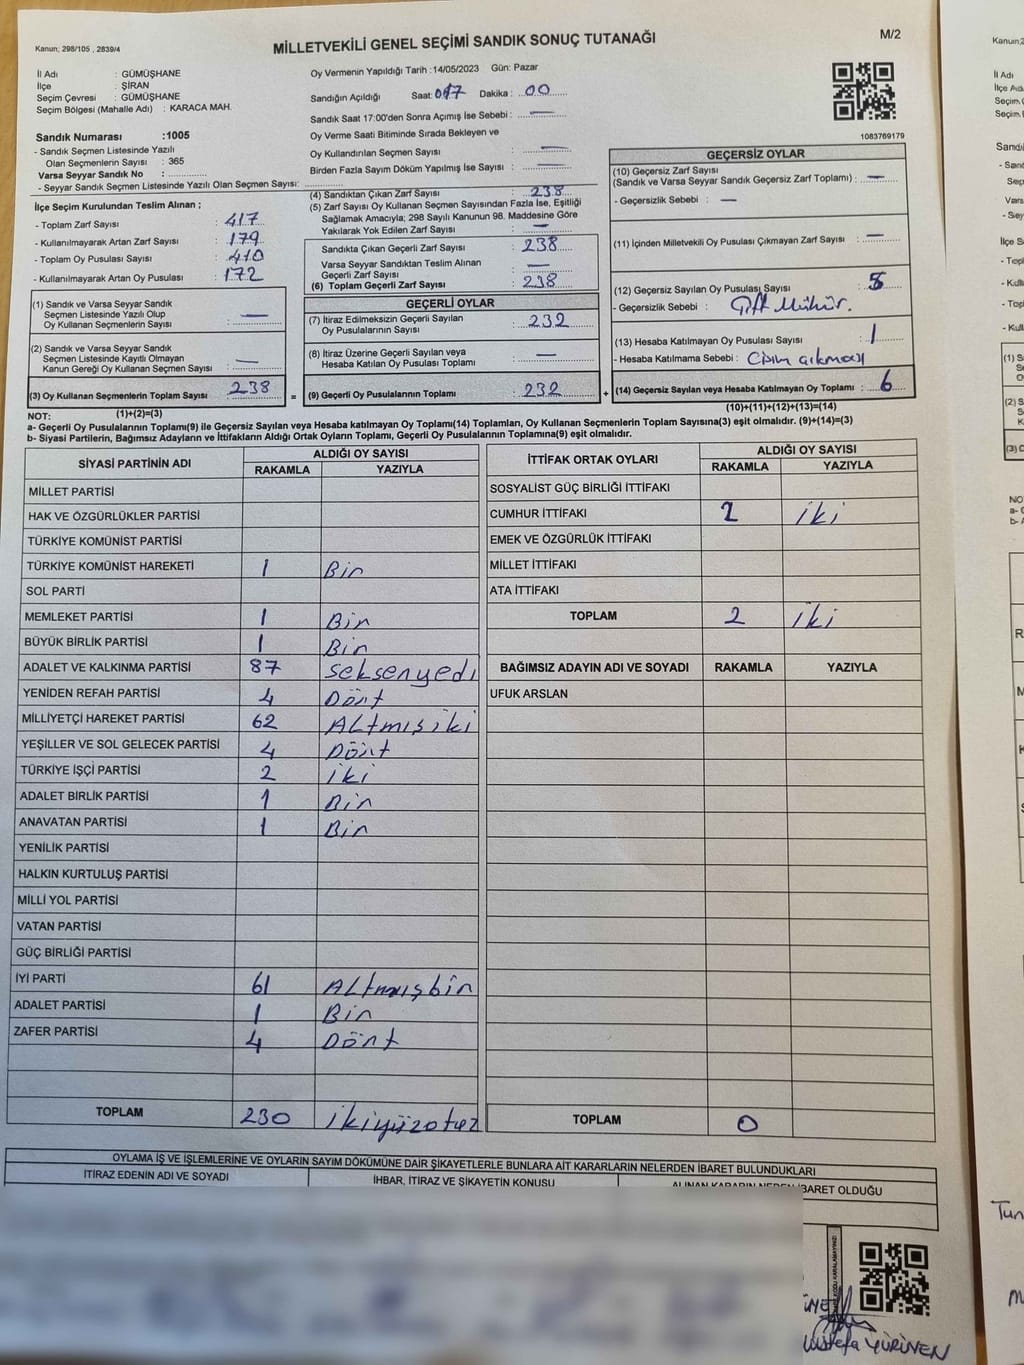 Kanun; 298/105 , 2839/4
MİLLETVEKİLİ GENEL SEÇİMİ SANDIK SONUÇ TUTANAĞI
M/2
İl Adı : GÜMÜŞHANE
İlçe : ŞİRAN
Seçim Çevresi : GÜMÜŞHANE
Seçim Bölgesi (Mahalle Adı) : KARACA MAH.
Sandık Numarası :1005
- Sandık Seçmen Listesinde Yazılı
Olan Seçmenlerin Sayısı : 365
Varsa Seyyar Sandık No :
- Seyyar Sandık Seçmen Listesinde Yazılı Olan Seçmen Sayısı:
İlçe Seçim Kurulundan Teslim Alınan ;
- Toplam Zarf Sayısı : 417
- Kullanılmayarak Artan Zarf Sayısı : 179
- Toplam Oy Pusulası Sayısı : 410
- Kullanılmayarak Artan Oy Pusulası : 172
(1) Sandık ve Varsa Seyyar Sandık
Seçmen Listesinde Yazılı Olup
Oy Kullanan Seçmenlerin Sayısı : —
(2) Sandık ve Varsa Seyyar Sandık
Seçmen Listesinde Kayıtlı Olmayan
Kanun Gereği Oy Kullanan Seçmen Sayısı : —
(3) Oy Kullanan Seçmenlerin Toplam Sayısı : 238
(1)+(2)=(3)
Oy Vermenin Yapıldığı Tarih :14/05/2023 Gün: Pazar
Sandığın Açıldığı Saat: 17 Dakika : 00
Sandık Saat 17:00'den Sonra Açımış İse Sebebi : —
Oy Verme Saati Bitiminde Sırada Bekleyen ve
Oy Kullandırılan Seçmen Sayısı : —
Birden Fazla Sayım Döküm Yapılmış İse Sayısı : —
(4) Sandıktan Çıkan Zarf Sayısı : 238
(5) Zarf Sayısı Oy Kullanan Seçmen Sayısından Fazla İse, Eşitliği
Sağlamak Amacıyla; 298 Sayılı Kanunun 98. Maddesine Göre
Yakılarak Yok Edilen Zarf Sayısı : —
Sandıkta Çıkan Geçerli Zarf Sayısı : 238
Varsa Seyyar Sandıktan Teslim Alınan
Geçerli Zarf Sayısı : —
(6) Toplam Geçerli Zarf Sayısı : 238
GEÇERLİ OYLAR
(7) İtiraz Edilmeksizin Geçerli Sayılan
Oy Pusulalarının Sayısı : 232
(8) İtiraz Üzerine Geçerli Sayılan veya
Hesaba Katılan Oy Pusulası Toplamı : —
= (9) Geçerli Oy Pusulalarının Toplamı : 232 +
1083769179
GEÇERSİZ OYLAR
(10) Geçersiz Zarf Sayısı
(Sandık ve Varsa Seyyar Sandık Geçersiz Zarf Toplamı) : —
- Geçersizlik Sebebi : —
(11) İçinden Milletvekili Oy Pusulası Çıkmayan Zarf Sayısı : —
(12) Geçersiz Sayılan Oy Pusulası Sayısı : 5
- Geçersizlik Sebebi : Çift Mühür.
(13) Hesaba Katılmayan Oy Pusulası Sayısı : 1
- Hesaba Katılmama Sebebi : Cisim çıkması
(14) Geçersiz Sayılan veya Hesaba Katılmayan Oy Toplamı : 6
(10)+(11)+(12)+(13)=(14)
NOT:
a- Geçerli Oy Pusulalarının Toplamı(9) ile Geçersiz Sayılan veya Hesaba katılmayan Oy Toplamı(14) Toplamları, Oy Kullanan Seçmenlerin Toplam Sayısına(3) eşit olmalıdır. (9)+(14)=(3)
b- Siyasi Partilerin, Bağımsız Adayların ve İttifakların Aldığı Ortak Oyların Toplamı, Geçerli Oy Pusulalarının Toplamına(9) eşit olmalıdır.
SİYASİ PARTİNİN ADI ALDIĞI OY SAYISI
RAKAMLA YAZIYLA
MİLLET PARTİSİ
HAK VE ÖZGÜRLÜKLER PARTİSİ
TÜRKİYE KOMÜNİST PARTİSİ
TÜRKİYE KOMÜNİST HAREKETİ 1 Bir
SOL PARTİ
MEMLEKET PARTİSİ 1 Bir
BÜYÜK BİRLİK PARTİSİ 1 Bir
ADALET VE KALKINMA PARTİSİ 87 seksenyedi
YENİDEN REFAH PARTİSİ 4 Dört
MİLLİYETÇİ HAREKET PARTİSİ 62 ALtmışiki
YEŞİLLER VE SOL GELECEK PARTİSİ 4 Dört
TÜRKİYE İŞÇİ PARTİSİ 2 iki
ADALET BİRLİK PARTİSİ 1 Bir
ANAVATAN PARTİSİ 1 Bir
YENİLİK PARTİSİ
HALKIN KURTULUŞ PARTİSİ
MİLLİ YOL PARTİSİ
VATAN PARTİSİ
GÜÇ BİRLİĞİ PARTİSİ
İYİ PARTİ 61 ALtmışbir
ADALET PARTİSİ 1 Bir
ZAFER PARTİSİ 4 Dört
TOPLAM 230 ikiyüzotuz
İTTİFAK ORTAK OYLARI ALDIĞI OY SAYISI
RAKAMLA YAZIYLA
SOSYALİST GÜÇ BİRLİĞİ İTTİFAKI
CUMHUR İTTİFAKI 2 iki
EMEK VE ÖZGÜRLÜK İTTİFAKI
MİLLET İTTİFAKI
ATA İTTİFAKI
TOPLAM 2 iki
BAĞIMSIZ ADAYIN ADI VE SOYADI RAKAMLA YAZIYLA
UFUK ARSLAN
TOPLAM 0
OYLAMA İŞ VE İŞLEMLERİNE VE OYLARIN SAYIM DÖKÜMÜNE DAİR ŞİKAYETLERLE BUNLARA AİT KARARLARIN NELERDEN İBARET BULUNDUKLARI
İTİRAZ EDENİN ADI VE SOYADI İHBAR, İTİRAZ VE ŞİKAYETİN KONUSU ALINAN KARARIN NEDEN İBARET OLDUĞU
Mustafa YÜRÜVEN
Kanun;
İl Adı
İlçe
Seçim